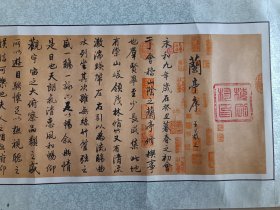 蘭亭序
王羲之
永和九年歲在癸丑暮春之初會
于會稽山陰之蘭亭脩禊事
也羣賢畢至少長咸集此地
有崇山峻領茂林脩竹又有清流
激湍暎帶左右引以為流觴曲
水列坐其次雖無絲竹管弦之
盛一觴一詠亦足以暢叙幽情
是日也天朗氣清惠風和暢仰
觀宇宙之大俯察品類之盛
所以遊目騁懷足以極視聽之
娛信可樂也夫人之相與俯仰